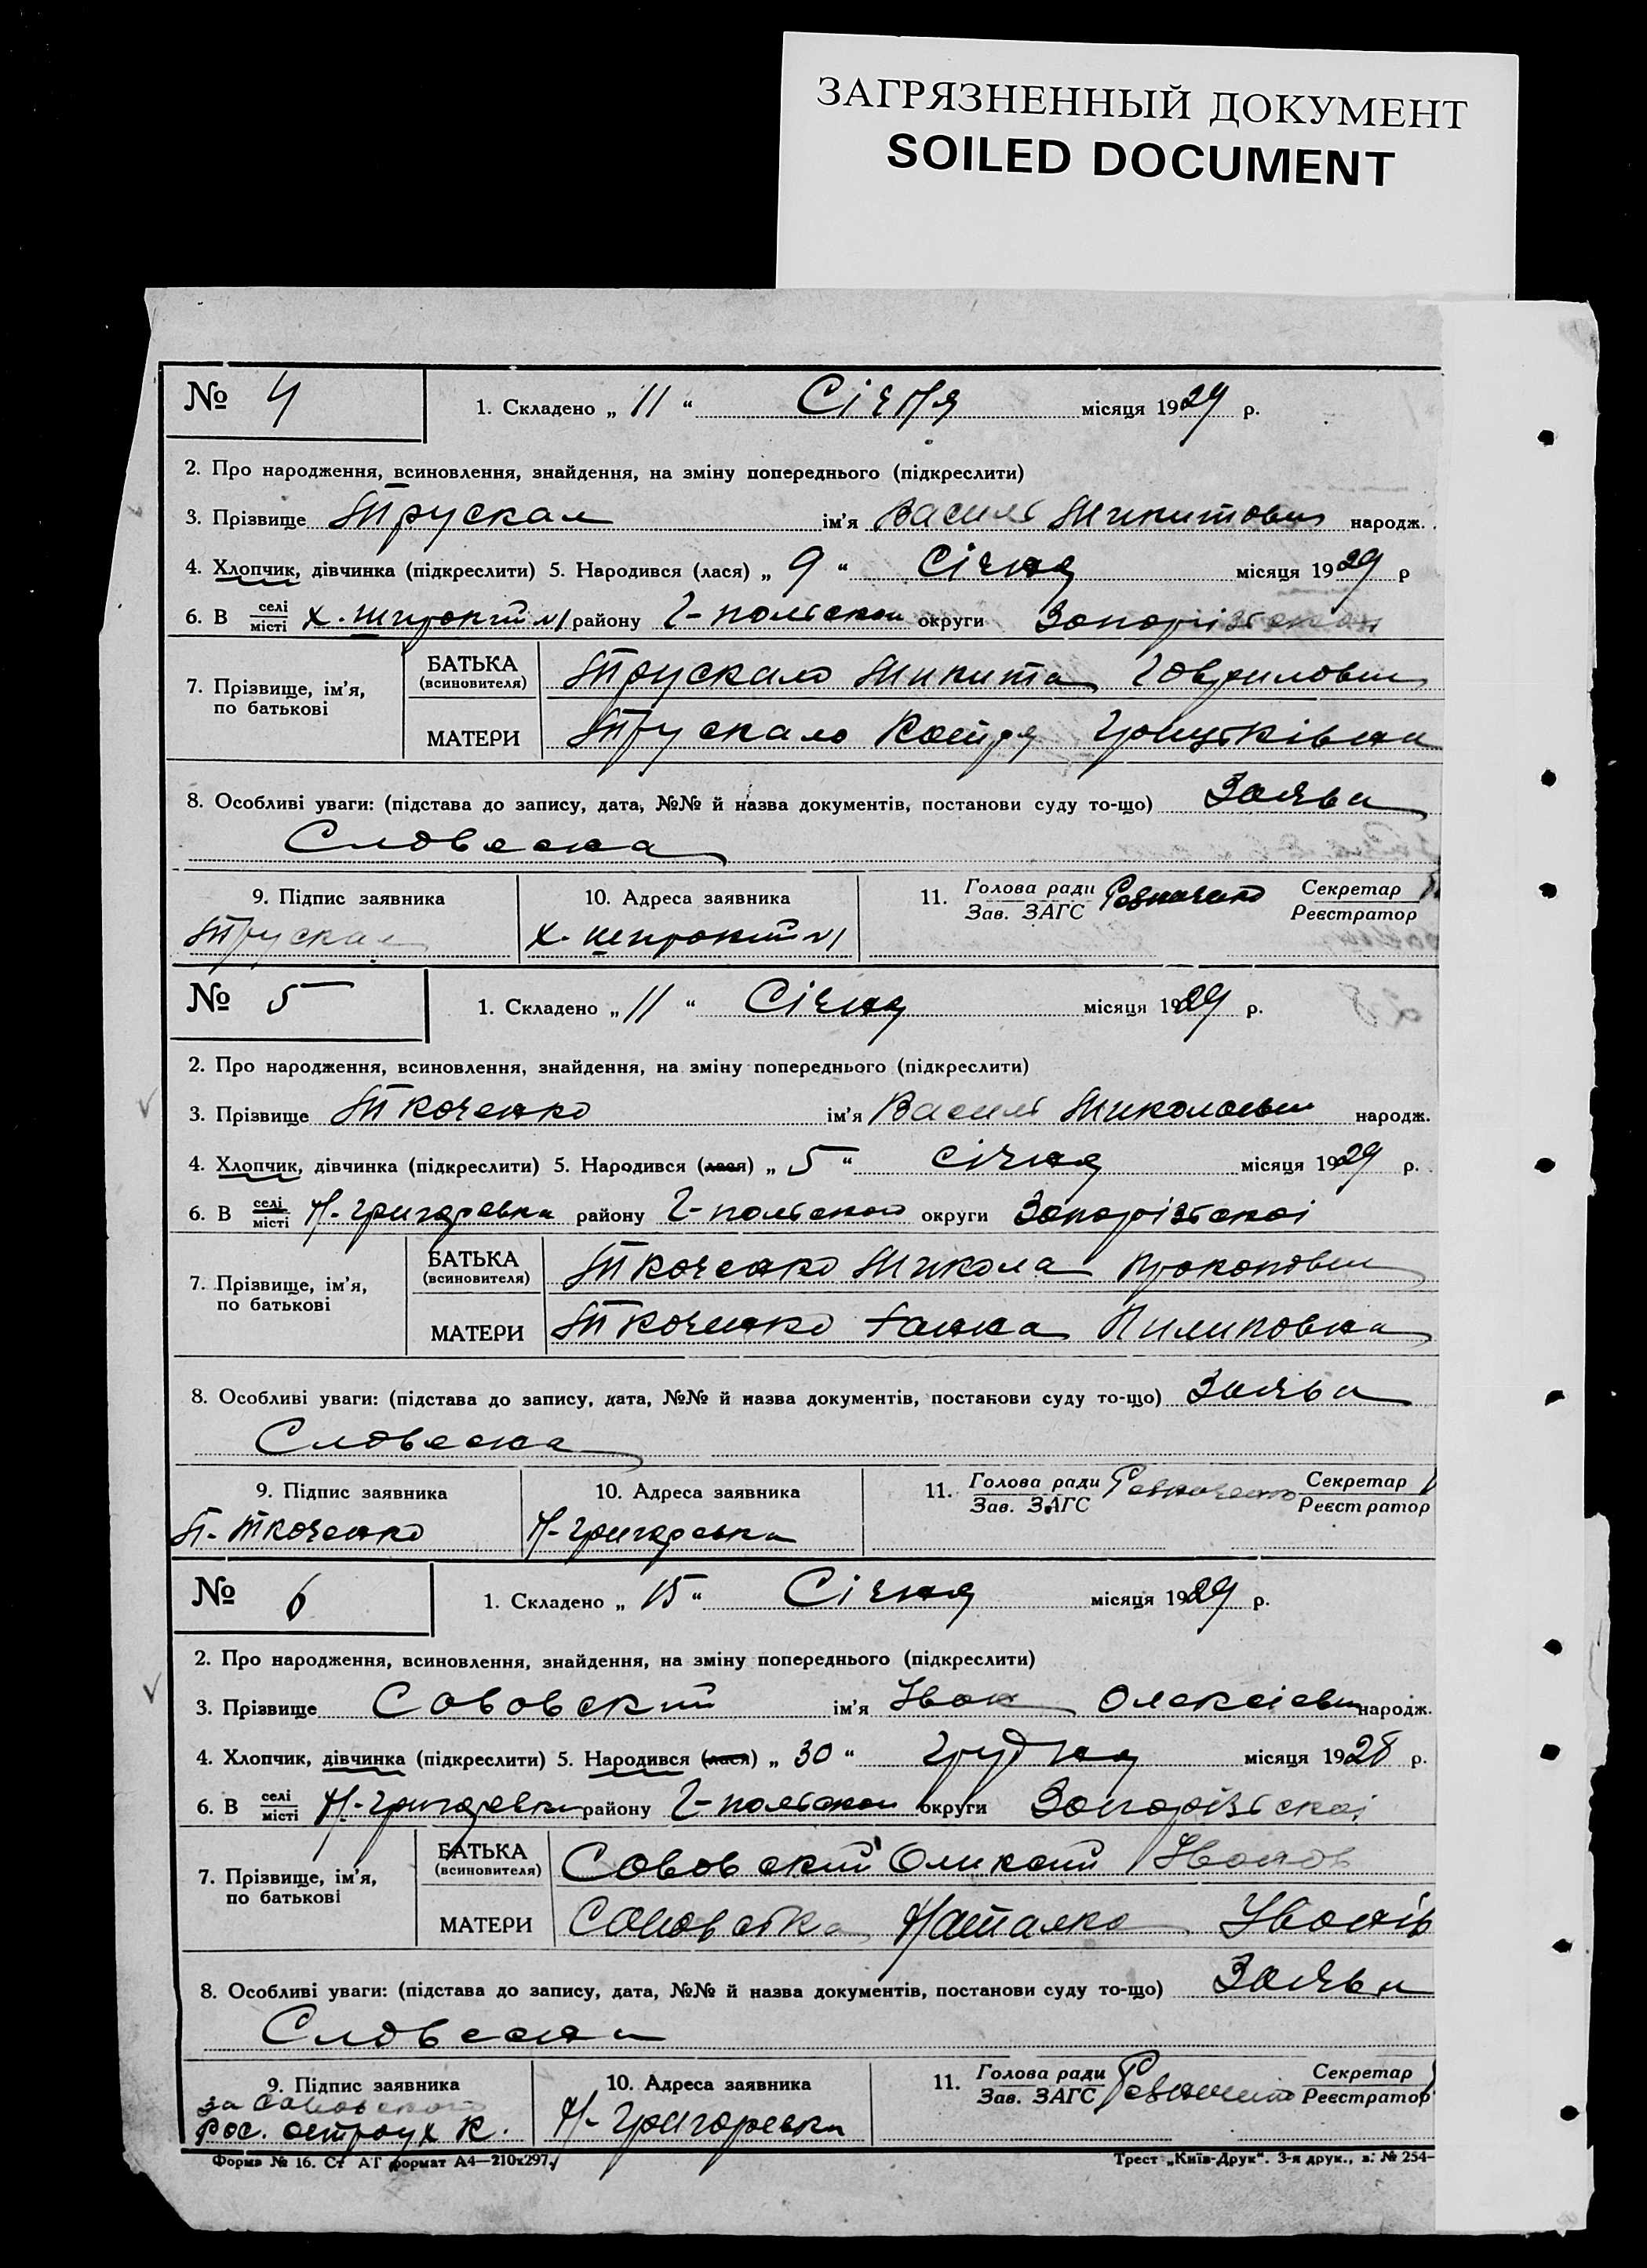 ЗАГРЯЗНЕННЫЙ ДОКУМЕНТ
SOILED DOCUMENT
№ 4
1. Складено „ 11 “ Січня місяця 1929 р.
2. Про народження, всиновлення, знайдення, на зміну попереднього (підкреслити)
3. Прізвище Трускал ім'я Василь Микитович народж.
4. Хлопчик, дівчинка (підкреслити) 5. Народився (лася) „ 9 “ Січня місяця 1929 р
6. В селі місті х. Широкий №1 району Г-польскои округи Запорізької
7. Прізвище, ім'я, по батькові
БАТЬКА (всиновителя) Трускало Микита Говрилович
МАТЕРИ Трускало Котря
8. Особливі уваги: (підстава до запису, дата, №№ й назва документів, постанови суду то-що) Заява
Словесна
9. Підпис заявника
10. Адреса заявника
11. Голова ради Секретар
Зав. ЗАГС Реєстратор
Трускал
х. Широкий №1
№ 5
1. Складено „ 11 “ Січня місяця 1929 р.
2. Про народження, всиновлення, знайдення, на зміну попереднього (підкреслити)
3. Прізвище Ткаченко ім'я Василь Миколаевич народж.
4. Хлопчик, дівчинка (підкреслити) 5. Народився (лася) „ 5 “ січня місяця 1929 р.
6. В селі місті Н-Григоревка району Г-польскои округи Запорізської
7. Прізвище, ім'я, по батькові
БАТЬКА (всиновителя) Ткаченко Микола Прокопович
МАТЕРИ Ткаченко Ганна Пилиповна
8. Особливі уваги: (підстава до запису, дата, №№ й назва документів, постанови суду то-що) Заява
Словесна
9. Підпис заявника
10. Адреса заявника
11. Голова ради Секретар
Зав. ЗАГС Реєстратор
Ткаченко
Н-Григоревка
№ 6
1. Складено „ 15 “ Січня місяця 1929 р.
2. Про народження, всиновлення, знайдення, на зміну попереднього (підкреслити)
3. Прізвище Сововский ім'я Иван Олексієвич народж.
4. Хлопчик, дівчинка (підкреслити) 5. Народився (лася) „ 30 “ Грудня місяця 1928 р.
6. В селі місті Н-Григоревки району Г-польскои округи Запорізської
7. Прізвище, ім'я, по батькові
БАТЬКА (всиновителя) Сововский Оликсий Иванов
МАТЕРИ Наталка Иванів
8. Особливі уваги: (підстава до запису, дата, №№ й назва документів, постанови суду то-що) Заява
Словесна
9. Підпис заявника
10. Адреса заявника
11. Голова ради Секретар
Зав. ЗАГС Реєстратор
за
рос. остроух К.
Н-Григоревка
Форма № 16. Ст АТ формат А4—210х297.
Трест „Київ-Друк“. 3-я друк., з. № 254—